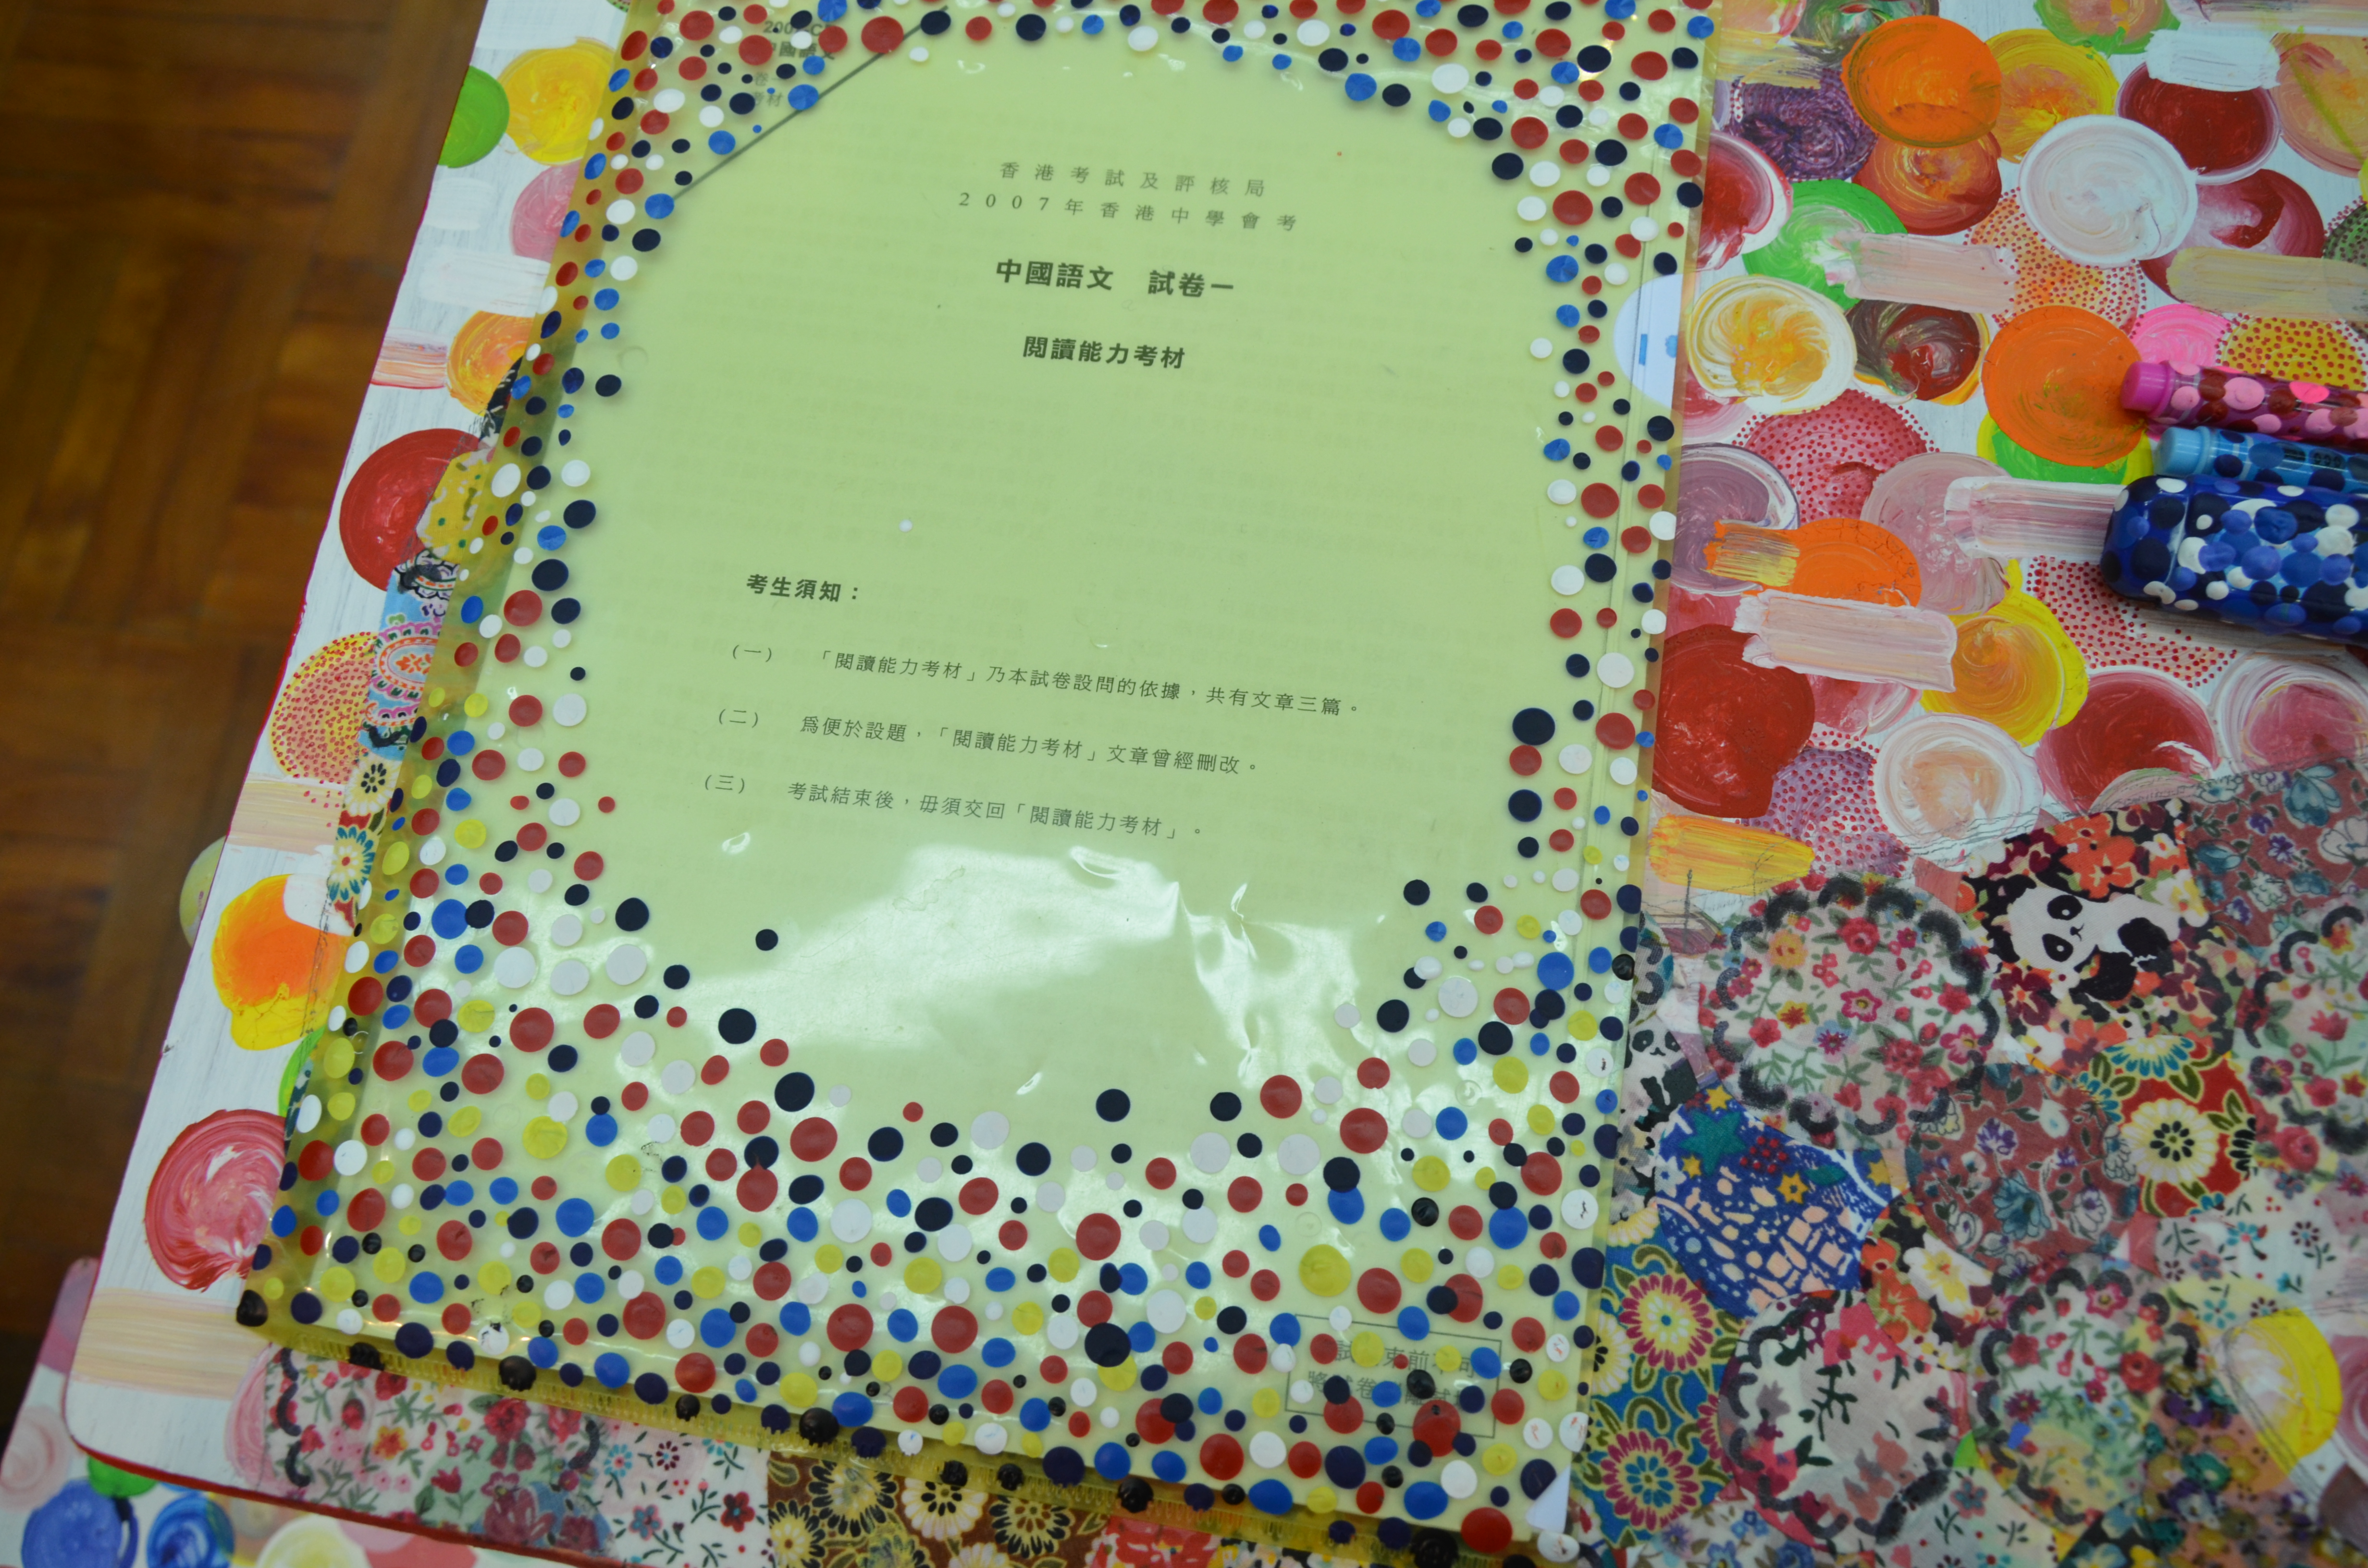 香港考試及評核局
2007年香港中學會考
中國語文 試卷一
閱讀能力考材
考生須知：
(一) 「閱讀能力考材」乃本試卷設問的依據，共有文章三篇。
(二) 爲便於設題，「閱讀能力考材」文章曾經刪改。
(三) 考試結束後，毋須交回「閱讀能力考材」。